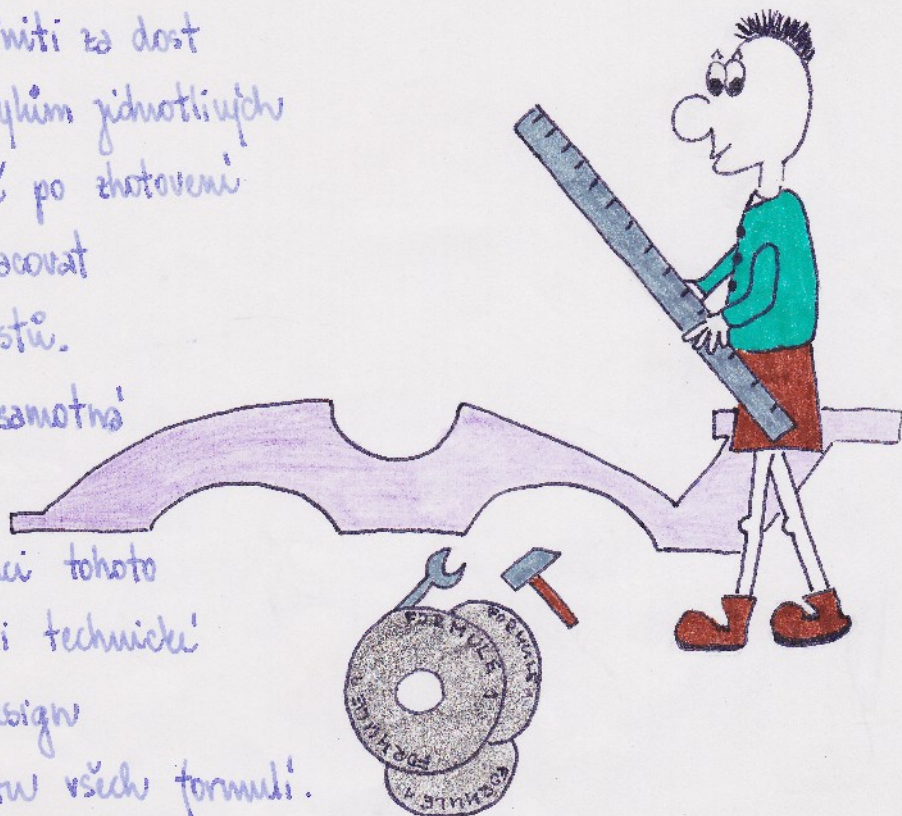 niti za dost
jednotlivých
po zhotovení
acovat
stů.
samotná
ci tohoto
i technické
sign
všech formulí.
FORMULE 1
FORMULE
FORMULE 1
FORMULE 1